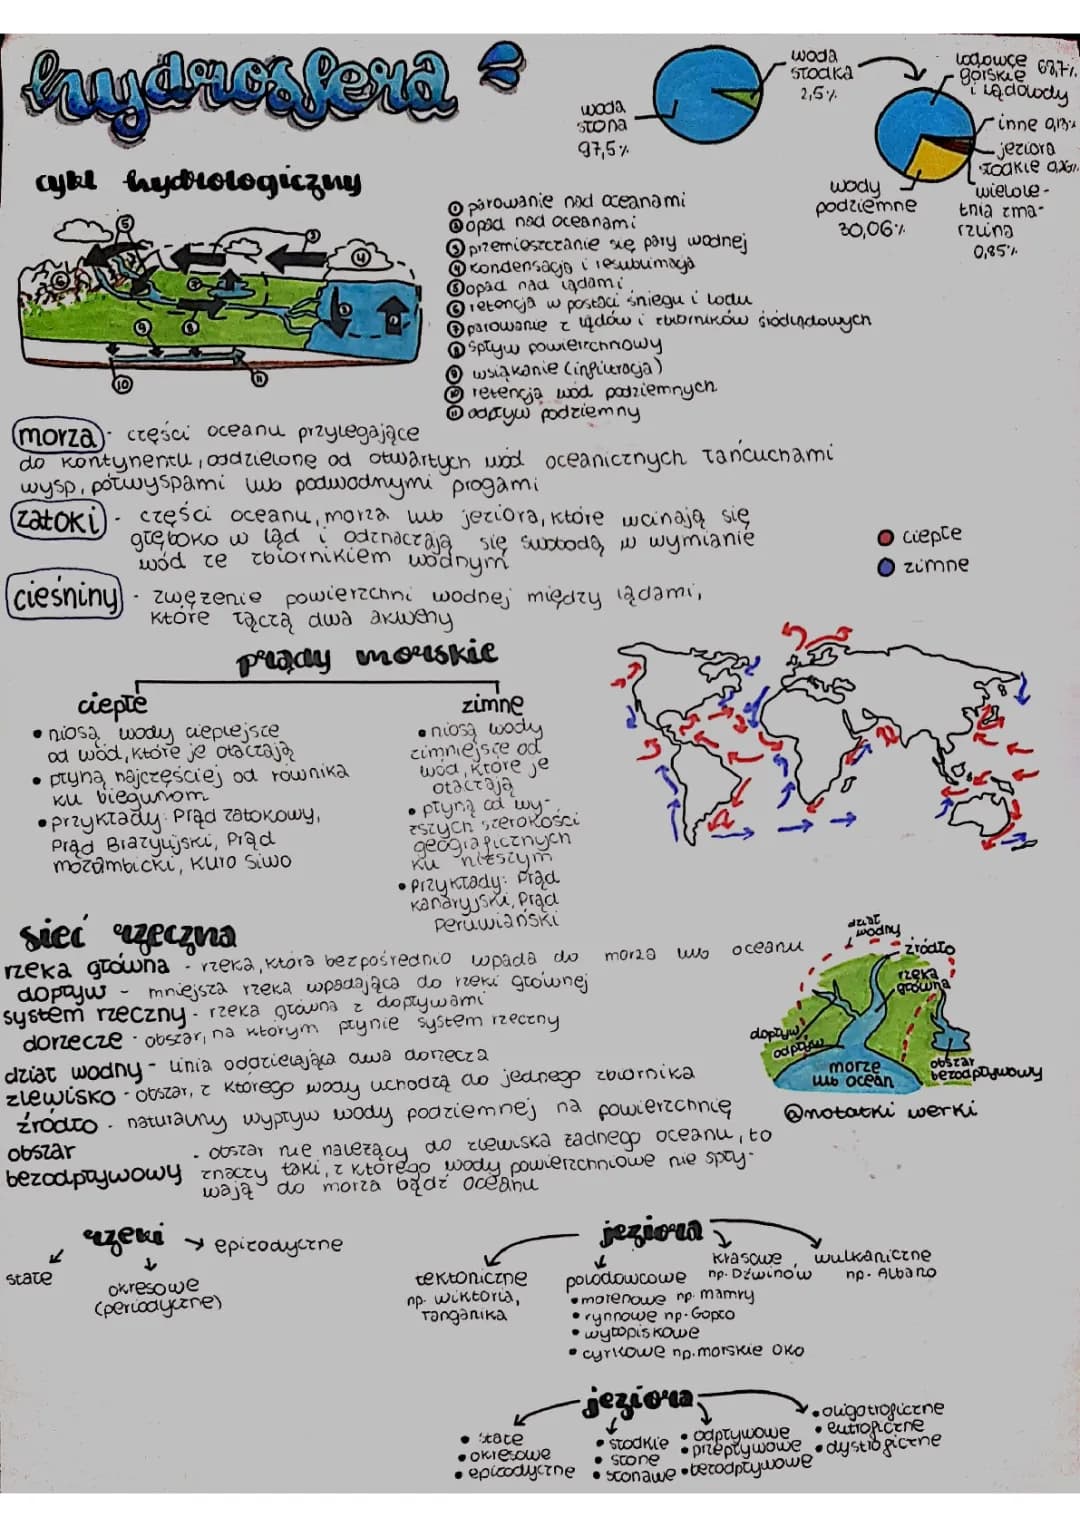 hydrosfera
woda
słona
97,5%
woda
słodka
2,5%
lodowce
górskie 68,7%
i lądolody
inne 0,13%
jeziora
słodkie 0,26%
wielole-
tnia zma-
rzlina
0,85%
wody
podziemne
30,06%
cykl hydrologiczny
① parowanie nad oceanami
② opad nad oceanami
③ przemieszczanie się pary wodnej
④ kondensacja i resublimacja
⑤ opad nad lądami
⑥ retencja w postaci śniegu i lodu
⑦ parowanie z lądów i zbiorników śródlądowych
⑧ spływ powierzchnowy
⑨ wsiąkanie (infiltracja)
⑩ retencja wód podziemnych
⑪ odpływ podziemny
morza - części oceanu przylegające
do kontynentu, oddzielone od otwartych wód oceanicznych łańcuchami
wysp, półwyspami lub podwodnymi progami
zatoki - części oceanu, morza lub jeziora, które wcinają się
głęboko w ląd i odznaczają się swobodą w wymianie
wód ze zbiornikiem wodnym
cieśniny - zwężenie powierzchni wodnej między lądami,
które łączą dwa akweny
ciepłe
zimne
prądy morskie
ciepłe
• niosą wody cieplejsze
od wód, które je otaczają
• płyną najczęściej od równika
ku biegunom
• przykłady: Prąd Zatokowy,
Prąd Brazylijski, Prąd
mozambicki, Kuro Siwo
zimne
• niosą wody
zimniejsze od
wód, które je
otaczają
• płyną od wy-
ższych szerokości
geograficznych
ku niższym
• Przykłady: Prąd
kanaryjski, Prąd
Peruwiański
sieć rzeczna
rzeka główna - rzeka, która bezpośrednio wpada do morza lub oceanu
dopływ - mniejsza rzeka wpadająca do rzeki głównej
system rzeczny - rzeka główna z dopływami
dorzecze - obszar, na którym płynie system rzeczny
dział wodny - linia oddzielająca dwa dorzecza
zlewisko - obszar, z którego wody uchodzą do jednego zbiornika
źródło - naturalny wypływ wody podziemnej na powierzchnię
obszar
bezodpływowy - obszar nie należący do zlewiska żadnego oceanu, to
znaczy taki, z którego wody powierzchniowe nie spły-
wają do morza bądź oceanu
dział
wodny
źródło
rzeka
główna
dopływ
odpływ
morze
lub ocean
obszar
bezodpływowy
@notatki werki
rzeki
stałe
okresowe
(periodyczne)
epizodyczne
jeziora
tektoniczne
np. wiktoria,
Tanganika
polodowcowe
• morenowe np. mamry
• rynnowe np. Gopło
• wytopiskowe
• cyrkowe np. morskie oko
krasowe
np. Dźwinów
wulkaniczne
np. Albano
jeziora
• stałe
• okresowe
• epizodyczne
• słodkie
• słone
• słonawe
• odpływowe
• przepływowe
• bezodpływowe
• oligotroficzne
• eutroficzne
• dystroficzne